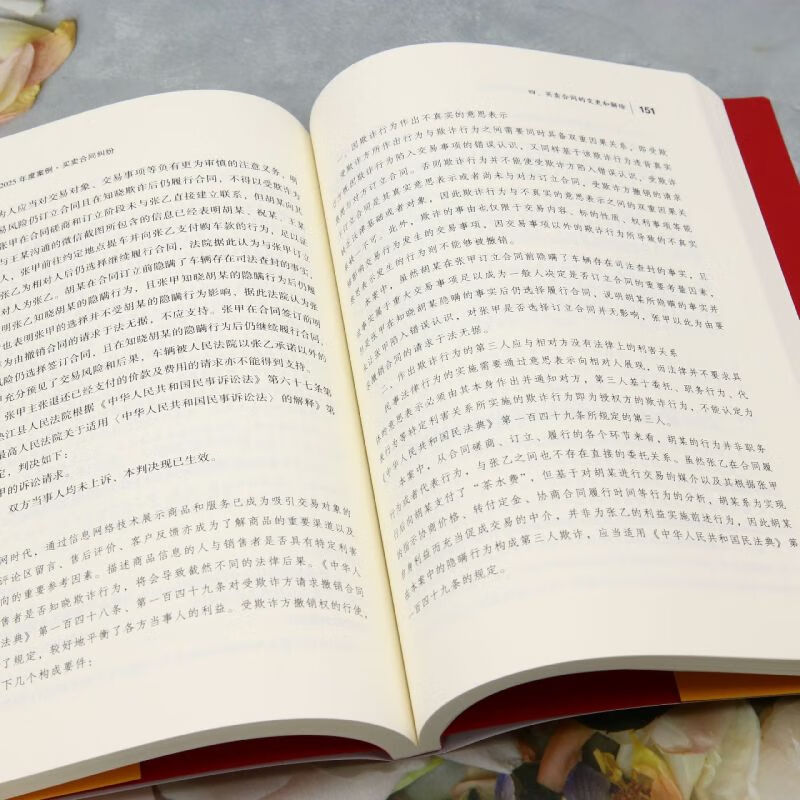 2025年度案例·买卖合同纠纷
为人应当对交易对象、交易事项等负有更为审慎的注意义务，明
易风险仍订立合同且在知晓欺诈后仍履行合同，不得以受欺诈为
张甲在合同磋商和订立阶段未与张乙直接建立联系，但胡某向其
与王某沟通的微信截图所包含的信息已经表明胡某、祝某、王某
人，张甲前往约定地点提车并向张乙支付购车款的行为，足以证
张乙为相对人后仍选择继续履行合同，法院据此认为与张甲订立
对人为张乙。胡某在合同订立前隐瞒了车辆存在司法查封的事实，
明张乙知晓胡某的隐瞒行为，且张甲知晓胡某的隐瞒行为后仍
也表明张甲的选择并不受胡某的隐瞒行为影响，据此法院认为
为由撤销合同的请求于法无据，不应支持。张甲在合同签订前明
风险仍选择签订合同，且在知晓胡某的隐瞒行为后仍继续履行合同，
甲充分预见了交易风险和后果，车辆被人民法院以张乙承诺以外的
，张甲主张退还已经支付的价款及费用的请求亦不能得到支持。
垫江县人民法院根据《中华人民共和国民事诉讼法》第六十七条第
最高人民法院关于适用〈中华人民共和国民事诉讼法〉的解释》第
定，判决如下：
甲的诉讼请求。
双方当事人均未上诉、本判决现已生效。
网时代，通过信息网络技术展示商品和服务已成为吸引交易对象的
评论区留言、售后评价、客户反馈亦成为了解商品的重要渠道以及
向的重要参考因素。描述商品信息的人与销售者是否具有特定利害
售者是否知晓欺诈行为，将会导致截然不同的法律后果。《中华人
法典》第一百四十八条、第一百四十九条对受欺诈方请求撤销合同
了规定，较好地平衡了各方当事人的利益。受欺诈方撤销权的行使，
下几个构成要件：
四、买卖合同的变更和解除 151
一、因欺诈行为作出不真实的意思表示
受欺诈方所作出行为与欺诈行为之间需要同时具备双重因果关系，即受欺
行为陷入交易事项的错误认识，又同样基于该欺诈行为违背真实
与对方订立合同。否则欺诈行为并不能使受欺诈方陷入错误认识，受欺诈
合同是其真实意思表示或者尚未与对方订立合同，受欺诈方撤销的请求
法律基础或者对象，因此欺诈行为与不真实的意思表示之间的双重因果关
缺一不可。此外，欺诈的事由也仅限于交易内容、标的性质、权利事项等能
影响交易行为发生的交易事项，因交易事项以外的欺诈行为所导致的不真实
意思表示发生的行为则不能够被撤销。
本案中，虽然胡某在张甲订立合同前隐瞒了车辆存在司法查封的事实，且
事实属于重大交易事项足以成为一般人决定是否订立合同的重要考量因素，
张甲在知晓胡某隐瞒的事实后仍选择履行合同，说明胡某所隐瞒的事实并
张甲陷入错误认识，对张甲是否选择订立合同并无影响，张甲以此为由要
撤销合同的请求于法无据。
二、作出欺诈行为的第三人应与相对方没有法律上的利害关系
民事法律行为的实施需要通过意思表示向相对人展现，而法律并不要求具
体的意思表示必须由其本身作出并通知对方，第三人基于委托、职务行为、代
表行为等特定利害关系所实施的欺诈行为即为授权方的欺诈行为，不能认定为
《中华人民共和国民法典》第一百四十九条所规定的第三人。
本案中，从合同磋商、订立、履行的各个环节来看，胡某的行为并非职务
行为或者代表行为，与张乙之间也不存在直接的委托关系。虽然张乙在合同履
行后向胡某支付了“茶水费”，但基于对胡某进行交易的媒介以及其根据张甲
指示协商价格，转付定金、协商合同履行时间等行为的分析，胡某系为实现
利益而充当促成交易的中介，并非为张乙的利益实施前述行为，因此胡某
在本案中的隐瞒行为构成第三人欺诈，应当适用《中华人民共和国民法典》第
一百四十九条的规定。